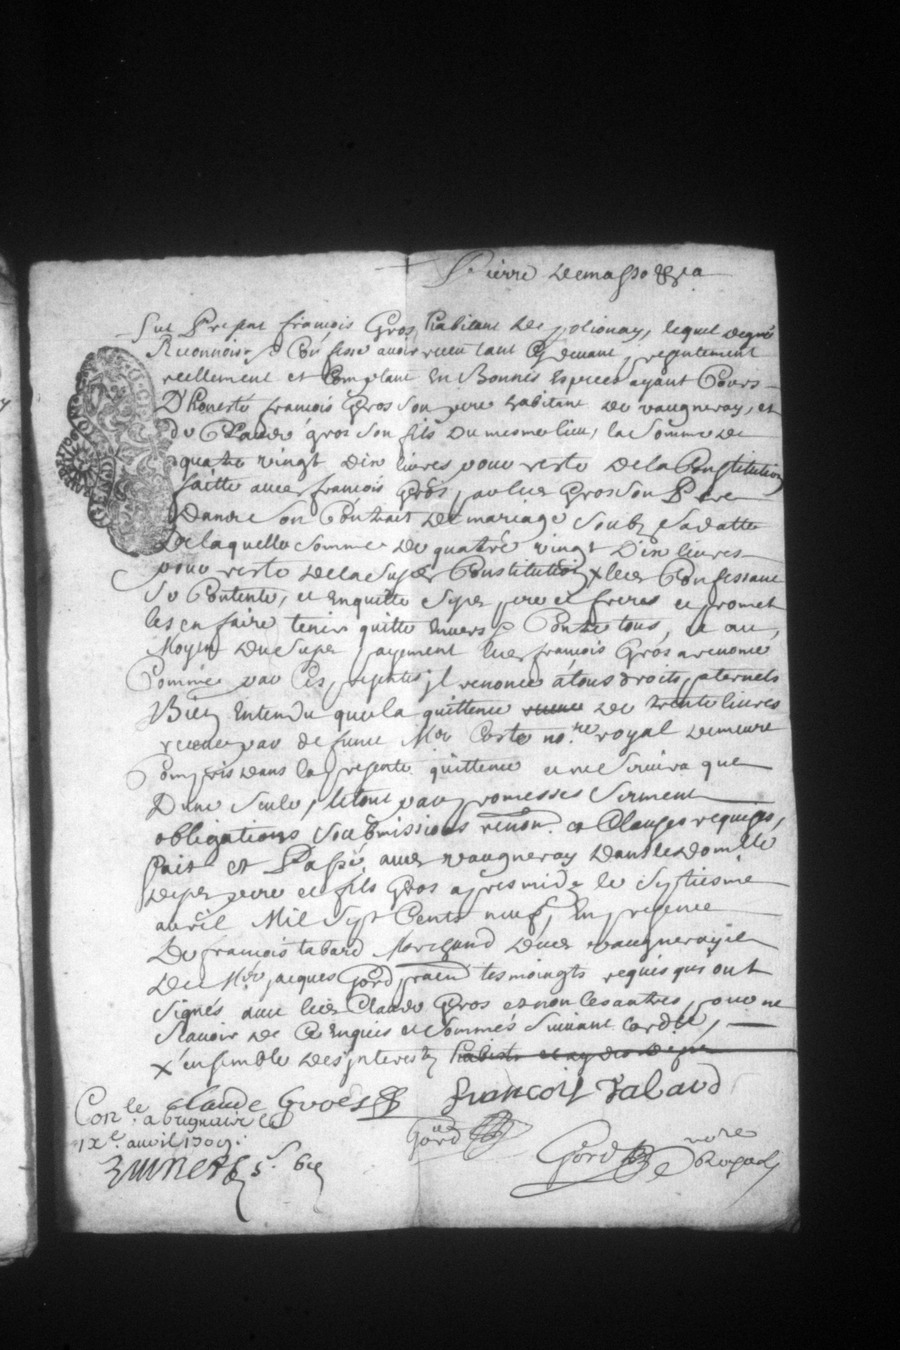 Pierre Demasso
fut Present françois Gros habitant de pollionay, lequel de gré
Reconnois & Confesse avoir receu tant Cy devant, presentement
reellement et Comptant En Bonnes Especes ayant Cours
D'honeste françois Gros son pere habitant de vaugneray, et
de Claude gros son fils du mesme lieu, la somme de
quatre vingt dix livres pour reste de la Constitution
faitte audit françois Gros, par ledit Gros son Pere
dans son Contrait de mariage soubz sa datte
de laquelle somme de quatre vingt Dix livres
pour reste de la susd Constitution x ledit Confessant
se Contente, et Enquitte sesd pere et freres et promet
les en faire tenir quitte Envers & Contre tous, et au
Moyen du susd payement led françois Gros a renoncé
Comme par Ces presentes jl renonce à tous droits paternels
Bien Entendu que la quittence de trente livres
receue par defunt Mer Coste nore royal demeure
Compris dans la presente quittence et ne servira que
D'une seule, le tout par promesses serment
obligations soubmissions renon. et Clauses requises,
fait et Passé audit vaugneray dans le domlle
desd pere et fils Gros apres midy le septiesme
avril Mil sept Cents neuf, En presence
de françois tabard Marchand dudit vaugneray et
de Mer jacques Gord tesmoingts requis qui ont
signés avec ledit Claude Gros et non les autres, pour ne
sçavoir de Ce Enquis et sommés suivant lordce,
x ensemble des jnterestz
claude Groes françois Tabard
Conle a Grignieu le
IXe. avril 1709.
Gord
Gord nore
Royal
5s. 6d